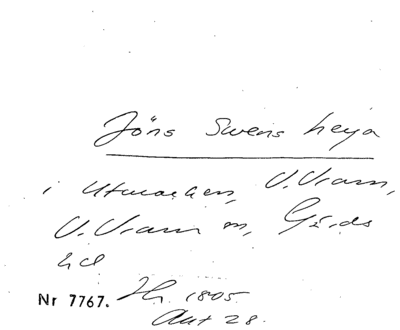 Jöns Swens heja
i Utmarken, V. Vram,
V. Vram sn, Gärds
hd
Nr 7767. Thr. 1805.
Akt 28.